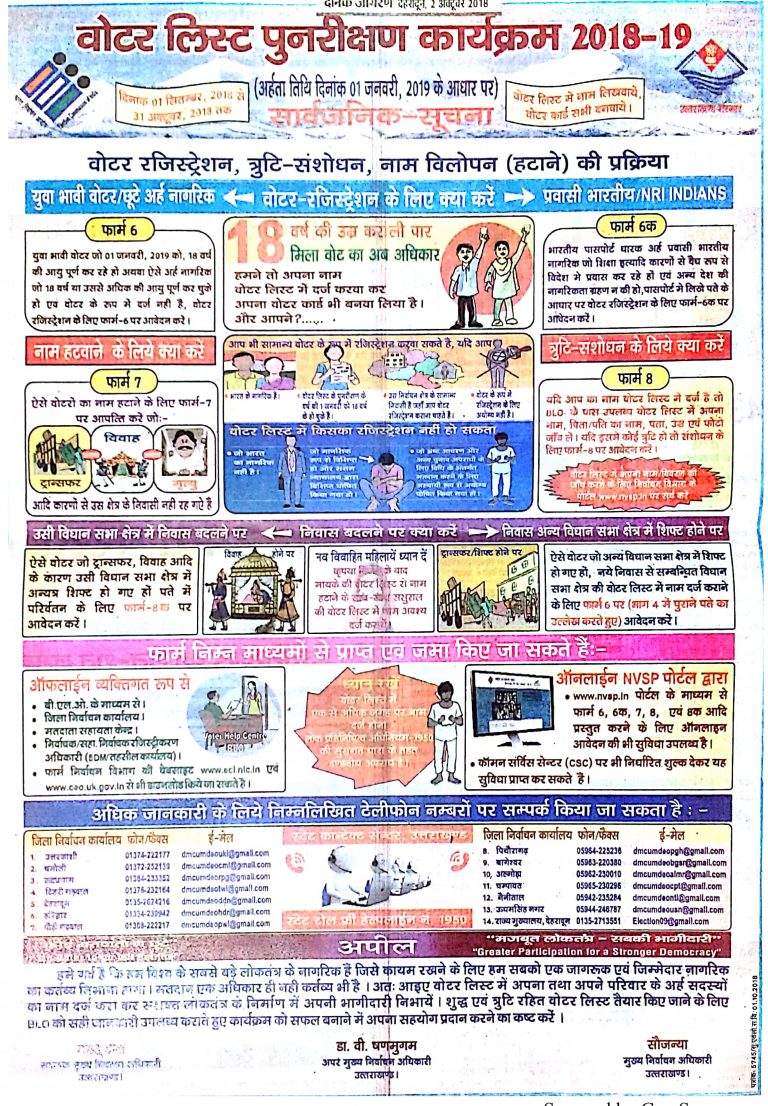 दैनिक जागरण देहरादून, 2 अक्टूबर 2018
वोटर लिस्ट पुनरीक्षण कार्यक्रम 2018-19
(अर्हता तिथि दिनांक 01 जनवरी, 2019 के आधार पर)
दिनांक 01 सितम्बर, 2018 से
31 अक्टूबर, 2018 तक
सार्वजनिक-सूचना
वोटर लिस्ट में नाम लिखवायें,
वोटर कार्ड सभी बनवायें।
उत्तराखण्ड सरकार
वोटर रजिस्ट्रेशन, त्रुटि-संशोधन, नाम विलोपन (हटाने) की प्रक्रिया
युवा भावी वोटर/छूटे अर्ह नागरिक
वोटर-रजिस्ट्रेशन के लिए क्या करें
प्रवासी भारतीय/NRI INDIANS
फार्म 6
युवा भावी वोटर जो 01 जनवरी, 2019 को, 18 वर्ष
की आयु पूर्ण कर रहे हो अथवा ऐसे अर्ह नागरिक
जो 18 वर्ष या उससे अधिक की आयु पूर्ण कर चुके
हो एवं वोटर के रूप में दर्ज नही है, वोटर
रजिस्ट्रेशन के लिए फार्म-6 पर आवेदन करें।
18 वर्ष की उम्र कर ली पार
मिला वोट का अब अधिकार
हमने तो अपना नाम
वोटर लिस्ट में दर्ज करवा कर
अपना वोटर कार्ड भी बनवा लिया है।
और आपने?......
फार्म 6क
भारतीय पासपोर्ट धारक अर्ह प्रवासी भारतीय
नागरिक जो शिक्षा इत्यादि कारणों से वैध रूप से
विदेश मे प्रवास कर रहे हो एवं अन्य देश की
नागरिकता ग्रहण न की हो, पासपोर्ट में लिखे पते के
आधार पर वोटर रजिस्ट्रेशन के लिए फार्म-6क पर
आवेदन करें।
नाम हटवाने के लिये क्या करें
फार्म 7
ऐसे वोटरो का नाम हटाने के लिए फार्म-7
पर आपत्ति करें जो:-
ट्रान्सफर
विवाह
मृत्यु
आदि कारणों से उस क्षेत्र के निवासी नही रह गए हैं
आप भी सामान्य वोटर के रूप में रजिस्ट्रेशन करवा सकते है, यदि आप
• भारत के नागरिक है।
• वोटर लिस्ट के पुनरीक्षण के
वर्ष की 1 जनवरी को 18 वर्ष
के हो चुके है।
• उस निर्वाचन क्षेत्र के सामान्य
निवासी है जहाँ आप वोटर
रजिस्ट्रेशन कराना चाहते है।
• वोटर के रूप में
रजिस्ट्रेशन के लिए
अयोग्य नही है।
वोटर लिस्ट में किसका रजिस्ट्रेशन नहीं हो सकता
• जो भारत
का नागरिक
नही है।
त्रुटि-संशोधन के लिये क्या करें
फार्म 8
यदि आप का नाम वोटर लिस्ट में दर्ज है तो
BLO के पास उपलब्ध वोटर लिस्ट में अपना
नाम, पिता/पति का नाम, पता, उम्र एवं फोटो
जाँच ले। यदि इसमे कोई त्रुटि हो तो संशोधन के
लिए फार्म-8 पर आवेदन करें।
वोटर लिस्ट में अपना नाम/विवरण की
जाँच करने के लिए निर्वाचन विभाग के
पोर्टल www.nvsp.in पर सर्च करे
उसी विधान सभा क्षेत्र में निवास बदलने पर
निवास बदलने पर क्या करें
निवास अन्य विधान सभा क्षेत्र में शिफ्ट होने पर
ऐसे वोटर जो ट्रान्सफर, विवाह आदि
के कारण उसी विधान सभा क्षेत्र में
अन्यत्र शिफ्ट हो गए हों पते में
परिवर्तन के लिए फार्म-8क पर
आवेदन करें।
विवाह होने पर
नव विवाहित महिलायें ध्यान दें
कृपया विवाह के बाद
मायके की वोटर लिस्ट से नाम
हटाने के साथ-साथ ससुराल
की वोटर लिस्ट में नाम अवश्य
दर्ज करायें।
ट्रान्सफर/शिफ्ट होने पर
ऐसे वोटर जो अन्य विधान सभा क्षेत्र में शिफ्ट
हो गए हों, नये निवास से सम्बन्धित विधान
सभा क्षेत्र की वोटर लिस्ट में नाम दर्ज कराने
के लिए फार्म 6 पर (भाग 4 में पुराने पते का
उल्लेख करते हुए) आवेदन करें।
फार्म निम्न माध्यमों से प्राप्त एवं जमा किए जा सकते हैं:-
ऑफलाईन व्यक्तिगत रूप से
• बी.एल.ओ. के माध्यम से।
• जिला निर्वाचन कार्यालय।
• मतदाता सहायता केन्द्र।
• निर्वाचक/सहा. निर्वाचक रजिस्ट्रीकरण
अधिकारी (SDM/तहसील कार्यालय)।
• फार्म निर्वाचन विभाग की वेबसाइट www.eci.nic.in एवं
www.ceo.uk.gov.in से भी डाउनलोड किये जा सकते है।
Voter Help Centre
BLO
ध्यान रखें
वोटर लिस्ट में
एक से अधिक जगह पर नाम
दर्ज होना
लोक प्रतिनिधित्व अधिनियम-1950
की सुसंगत धारा के तहत
दण्डनीय अपराध है।
ऑनलाईन NVSP पोर्टल द्वारा
• www.nvsp.in पोर्टल के माध्यम से
फार्म 6, 6क, 7, 8, एवं 8क आदि
प्रस्तुत करने के लिए ऑनलाइन
आवेदन की भी सुविधा उपलब्ध है।
• कॉमन सर्विस सेन्टर (CSC) पर भी निर्धारित शुल्क देकर यह
सुविधा प्राप्त कर सकते हैं।
अधिक जानकारी के लिये निम्नलिखित टेलीफोन नम्बरों पर सम्पर्क किया जा सकता है :-
जिला निर्वाचन कार्यालय फोन/फैक्स ई-मेल
1. उत्तरकाशी 01374-222177
2. चमोली
3. रुद्रप्रयाग
4. टिहरी गढ़वाल
5. देहरादून
6. हरिद्वार
7. पौड़ी गढ़वाल
स्टेट कान्टेक्ट सेन्टर, उत्तराखण्ड
स्टेट टोल फ्री हेल्पलाईन नं. 1950
जिला निर्वाचन कार्यालय फोन/फैक्स ई-मेल
8. पिथौरागढ़ dmcumdeopgh@gmail.com
9. बागेश्वर 05963-220380 dmcumdeobgsr@gmail.com
10. अल्मोड़ा 05962-230010 dmcumdeoalmr@gmail.com
11. चम्पावत 05965-230296 dmcumdeocpt@gmail.com
12. नैनीताल 05942-235284 dmcumdeontl@gmail.com
13. ऊधमसिंह नगर dmcumdeousn@gmail.com
14. राज्य मुख्यालय, देहरादून 0135-2713551 Election09@gmail.com
अपील
"मजबूत लोकतंत्र - सबकी भागीदारी"
"Greater Participation for a Stronger Democracy"
हमे गर्व है कि हम विश्व के सबसे बड़े लोकतंत्र के नागरिक हैं जिसे कायम रखने के लिए हम सबको एक जागरुक एवं जिम्मेदार नागरिक
का कर्तव्य निभाना होगा। मतदान एक अधिकार ही नही कर्तव्य भी है। अतः आइए वोटर लिस्ट में अपना तथा अपने परिवार के अर्ह सदस्यों
का नाम दर्ज करा कर सशक्त लोकतंत्र के निर्माण में अपनी भागीदारी निभायें। शुद्ध एवं त्रुटि रहित वोटर लिस्ट तैयार किए जाने के लिए
BLO को सही जानकारी उपलब्ध कराते हुए कार्यक्रम को सफल बनाने में अपना सहयोग प्रदान करने का कष्ट करें।
सहायक मुख्य निर्वाचन अधिकारी
उत्तराखण्ड।
डा. वी. षणमुगम
अपर मुख्य निर्वाचन अधिकारी
उत्तराखण्ड।
सौजन्या
मुख्य निर्वाचन अधिकारी
उत्तराखण्ड।